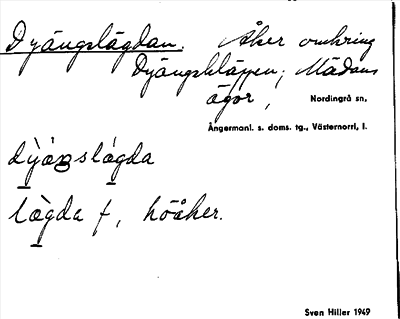 Dyängslägdan. Åker omkring
Dyängskläppen; Mädans
ägor,
Nordingrå sn,
Ångermanl. s. doms. tg., Västernorrl, l.
dỳäŋslägda
lägda f, höåker.
Sven Hiller 1949